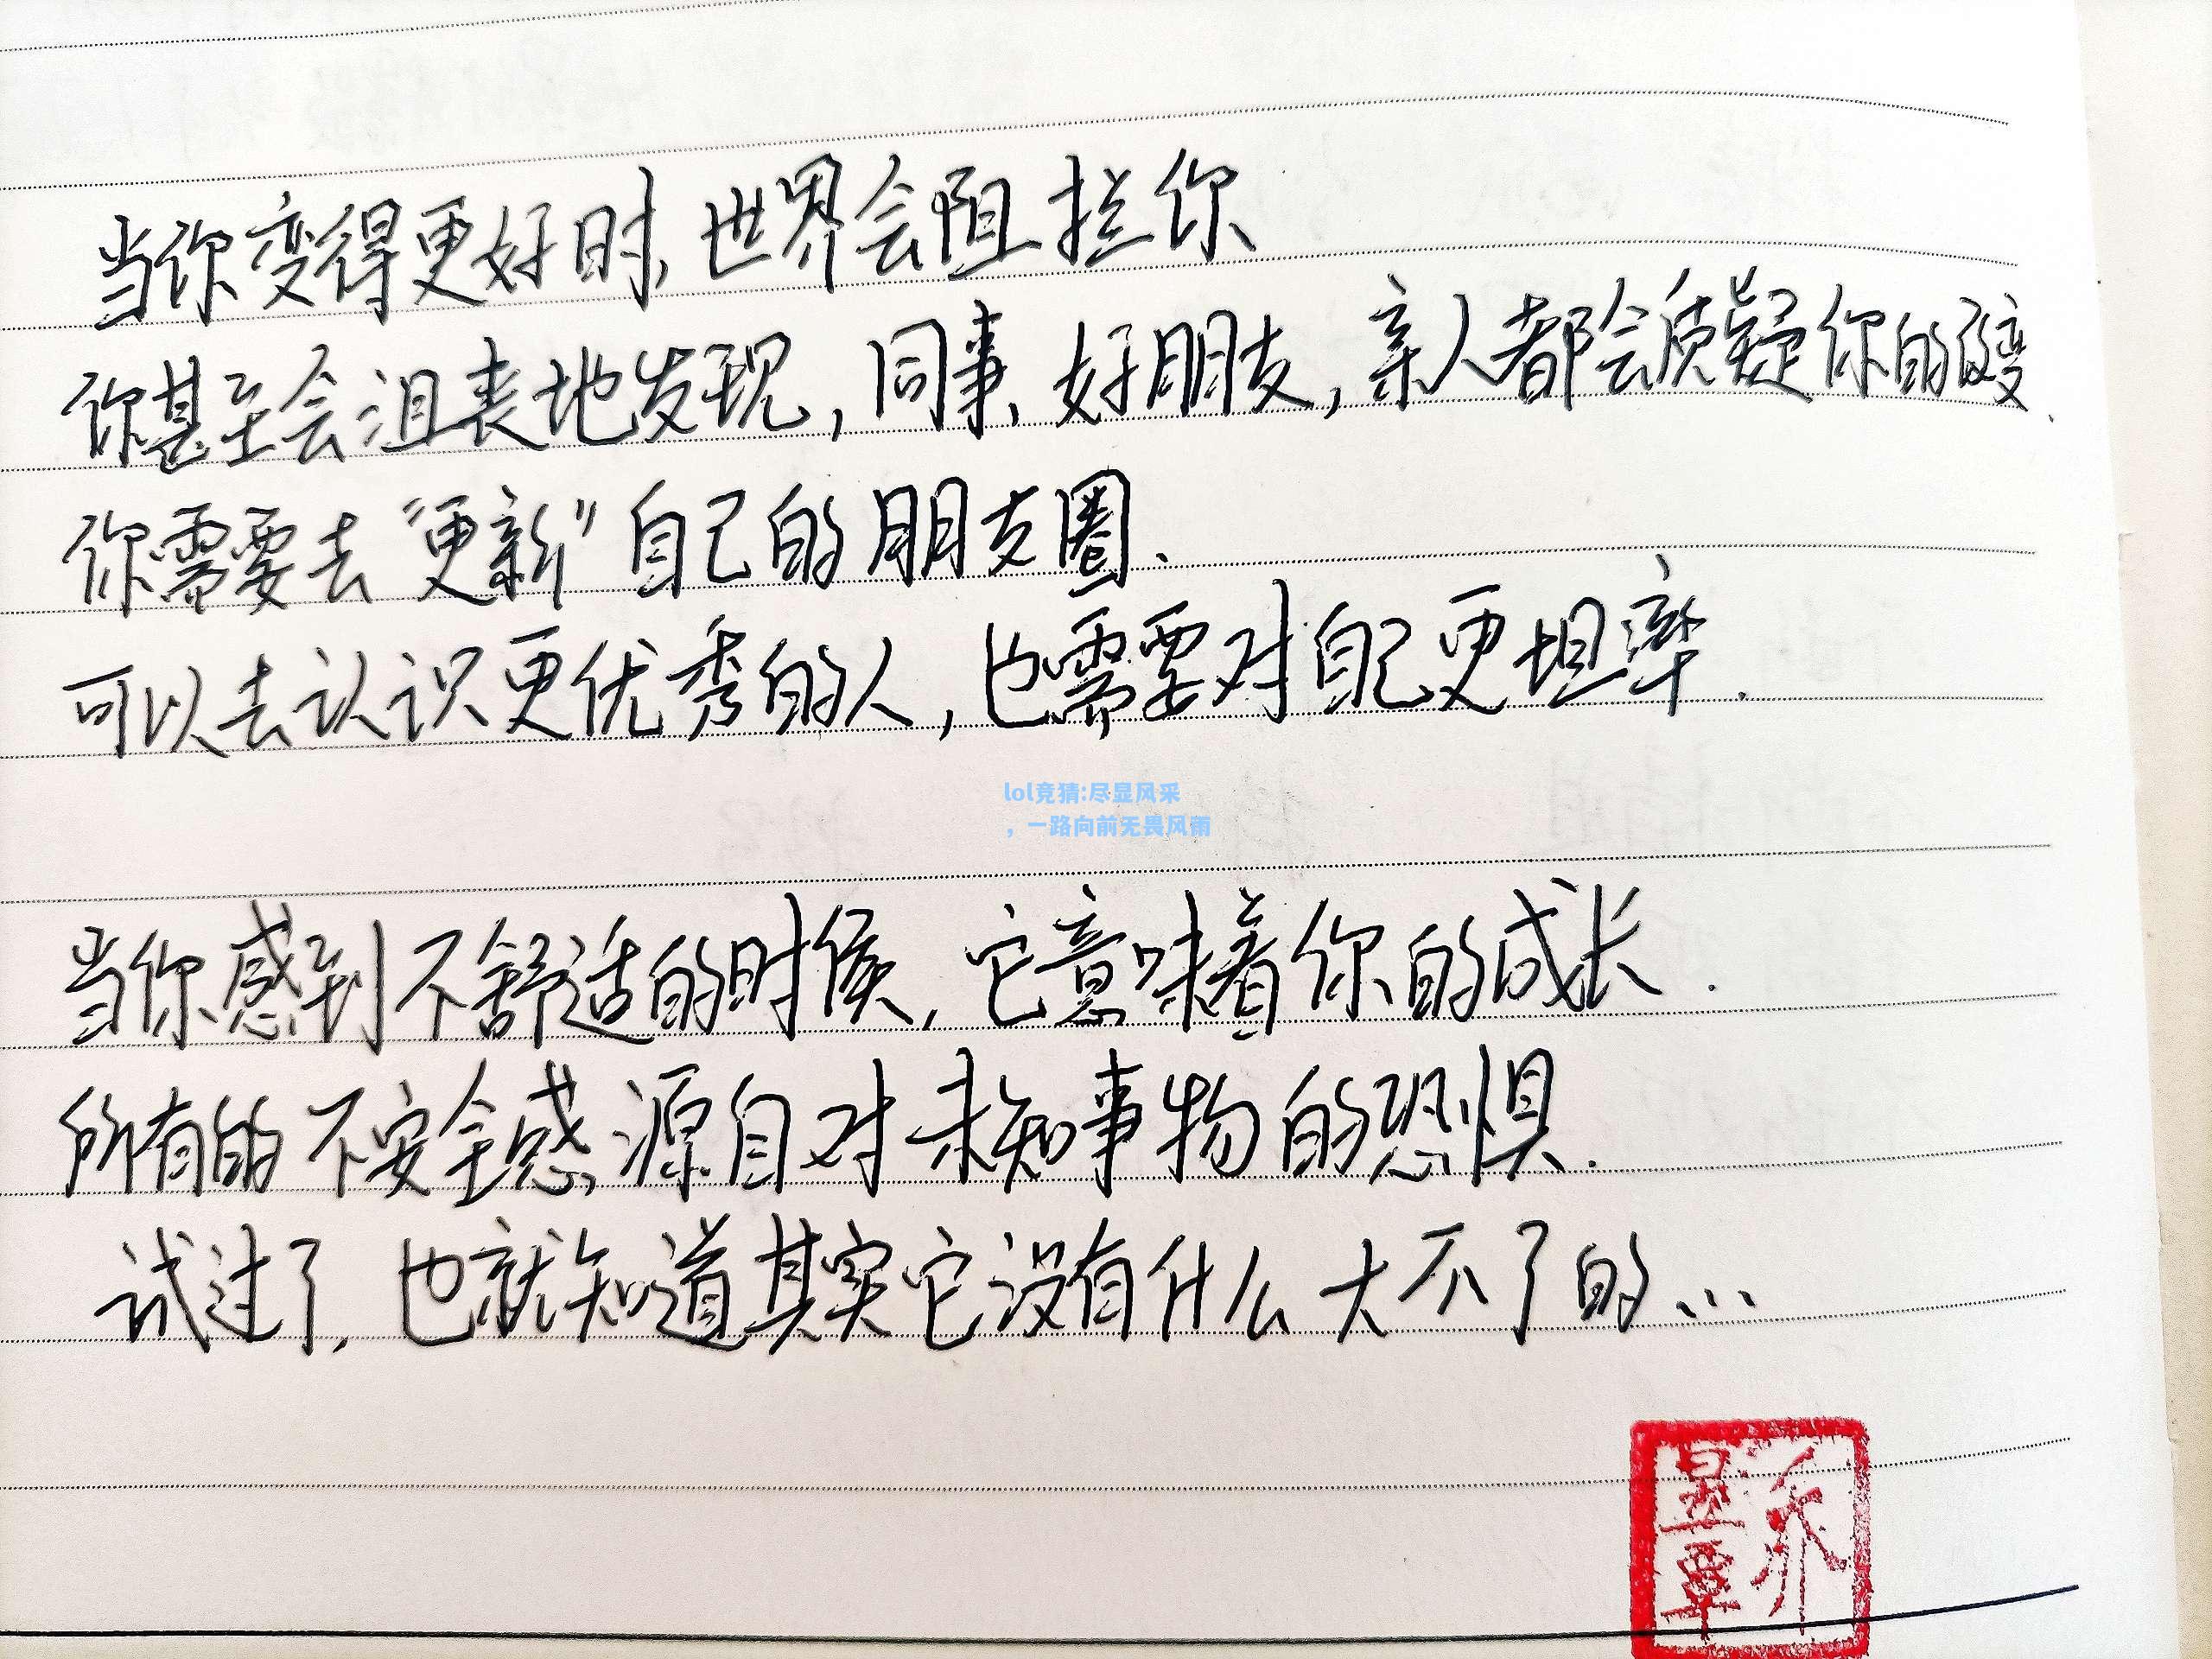 当你变得更好时,世界会阻拦你
你甚至会沮丧地发现,同事、好朋友,亲人都会质疑你的改变.
你需要去“更新”自己的朋友圈.
可以去认识更优秀的人,也需要对自己更坦率.
lol竞猜:尽显风采
，一路向前无畏风雨
当你感到不舒适的时候,它意味着你的成长.
所有的不安全感,源自对未知事物的恐惧.
试过了,也就知道其实它没有什么大不了的...